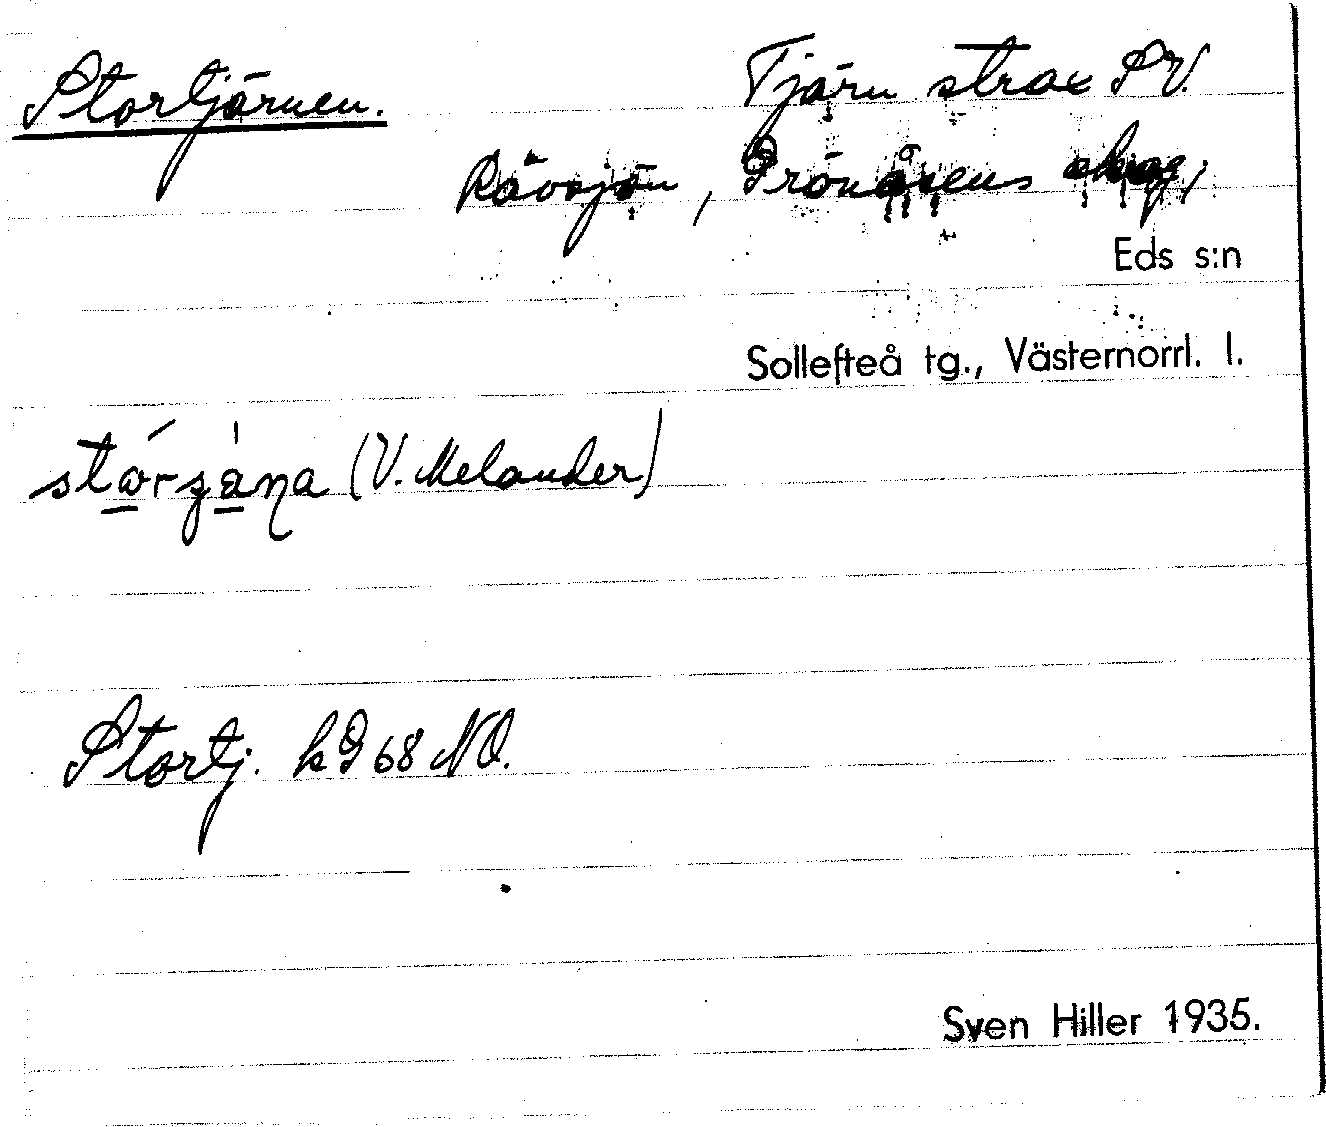 Stortjärnen.
Tjärn strax SV.
Rävsjön, Grönåsens skog,
Eds s:n
Sollefteå tg., Västernorrl. l.
(V. Melander)
Stortj. k G 68 NO.
Sven Hiller 1935.